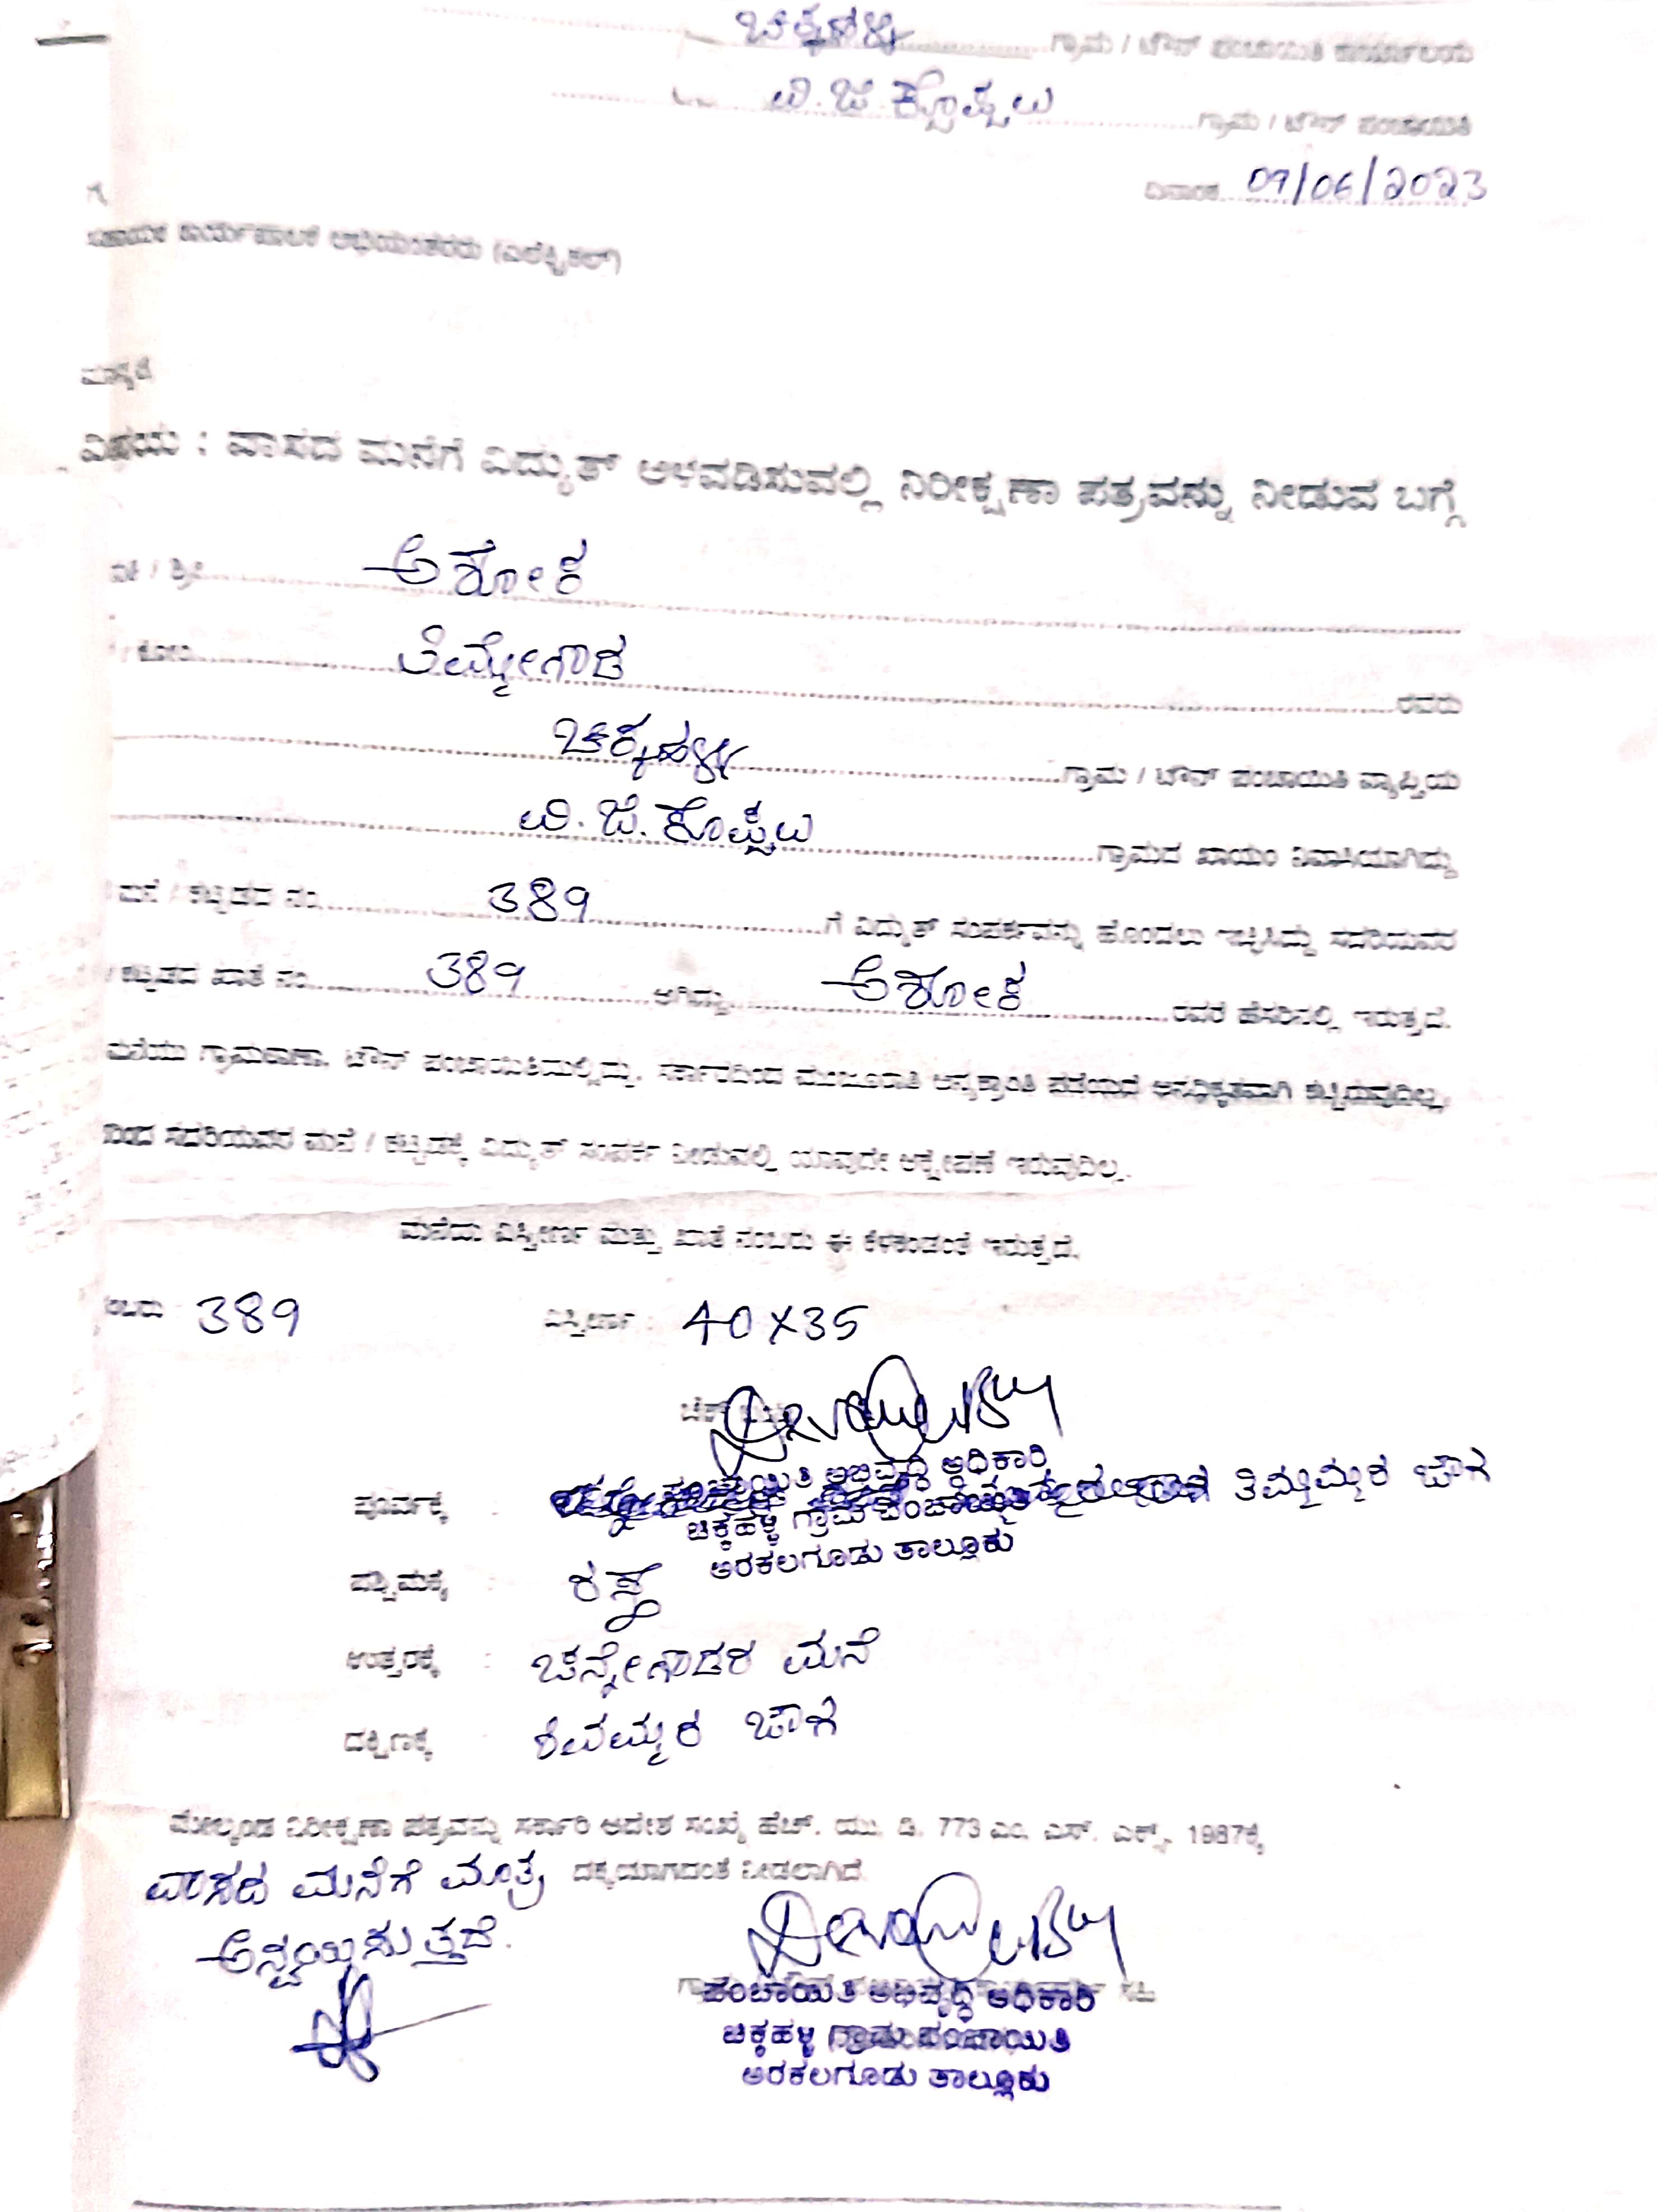 ಚಿಕ್ಕಹಳ್ಳಿ ಗ್ರಾಮ / ಟೌನ್ ಪಂಚಾಯಿತಿ ಕಾರ್ಯಾಲಯ
ಟಿ.ಜಿ.ಕೊಪ್ಪಲು ಗ್ರಾಮ / ಟೌನ್ ಪಂಚಾಯಿತಿ
ದಿನಾಂಕ 09/06/2023
ಸಹಾಯಕ ಕಾರ್ಯಪಾಲಕ ಅಭಿಯಂತರರು (ಎಲೆಕ್ಟ್ರಿಕಲ್)
ಮಾನ್ಯರೆ
ವಿಷಯ : ವಾಸದ ಮನೆಗೆ ವಿದ್ಯುತ್ ಅಳವಡಿಸುವಲ್ಲಿ ನಿರೀಕ್ಷಣಾ ಪತ್ರವನ್ನು ನೀಡುವ ಬಗ್ಗೆ
/ ಶ್ರೀ ಅಶೋಕ
/ ಕೋಂ ತಿಮ್ಮೇಗೌಡ ರವರು
ಚಿಕ್ಕಹಳ್ಳಿ ಗ್ರಾಮ / ಟೌನ್ ಪಂಚಾಯಿತಿ ವ್ಯಾಪ್ತಿಯ
ಟಿ.ಜಿ.ಕೊಪ್ಪಲು ಗ್ರಾಮದ ಖಾಯಂ ನಿವಾಸಿಯಾಗಿದ್ದು
ಮನೆ / ಕಟ್ಟಡದ ನಂ 389 ಗೆ ವಿದ್ಯುತ್ ಸಂಪರ್ಕವನ್ನು ಹೊಂದಲು ಇಚ್ಛಿಸಿದ್ದು ಸದರಿಯವರ
/ ಕಟ್ಟಡದ ಖಾತೆ ನಂ 389 ಆಗಿದ್ದು ಅಶೋಕ ರವರ ಹೆಸರಿನಲ್ಲಿ ಇರುತ್ತದೆ.
ಮನೆಯು ಗ್ರಾಮಠಾಣಾ, ಟೌನ್ ಪಂಚಾಯಿತಿಯಲ್ಲಿದ್ದು, ಸರ್ಕಾರದಿಂದ ಅನಧಿಕೃತವಾಗಿ ಕಟ್ಟಿರುವುದಿಲ್ಲ
ಸದರಿಯವರ ಮನೆ / ಕಟ್ಟಡಕ್ಕೆ ವಿದ್ಯುತ್ ಸಂಪರ್ಕ ನೀಡುವಲ್ಲಿ ಯಾವುದೇ ಆಕ್ಷೇಪಣೆ ಇರುವುದಿಲ್ಲ.
ಮನೆಯ ವಿಸ್ತೀರ್ಣ ಮತ್ತು ಖಾತೆ ನಂಬರು ಈ ಕೆಳಕಂಡಂತೆ ಇರುತ್ತದೆ.
389 ವಿಸ್ತೀರ್ಣ : 40x35
ಪಂಚಾಯಿತಿ ಅಭಿವೃದ್ಧಿ ಅಧಿಕಾರಿ
ಪೂರ್ವಕ್ಕೆ : ತಿಮ್ಮಮ್ಮರ ಜಾಗ
ಚಿಕ್ಕಹಳ್ಳಿ ಗ್ರಾಮ ಪಂಚಾಯಿತಿ
ಅರಕಲಗೂಡು ತಾಲ್ಲೂಕು
ಪಶ್ಚಿಮಕ್ಕೆ : ರಸ್ತೆ
ಉತ್ತರಕ್ಕೆ : ಚನ್ನೇಗೌಡರ ಮನೆ
ದಕ್ಷಿಣಕ್ಕೆ ಶಿವಮ್ಮರ ಜಾಗ
ಮೇಲ್ಕಂಡ ನಿರೀಕ್ಷಣಾ ಪತ್ರವನ್ನು ಸರ್ಕಾರಿ ಆದೇಶ ಸಂಖ್ಯೆ ಹೆಚ್. ಯು. ಡಿ. 773 ಎಂ. ಎಸ್. ಎಕ್ಸ್. 1987ಕ್ಕೆ
ಧಕ್ಕೆಯಾಗದಂತೆ ನೀಡಲಾಗಿದೆ
ವಾಸದ ಮನೆಗೆ ಮಾತ್ರ
ಅನ್ವಯಿಸುತ್ತದೆ.
ಪಂಚಾಯಿತಿ ಅಭಿವೃದ್ಧಿ ಅಧಿಕಾರಿ
ಚಿಕ್ಕಹಳ್ಳಿ ಗ್ರಾಮ ಪಂಚಾಯಿತಿ
ಅರಕಲಗೂಡು ತಾಲ್ಲೂಕು